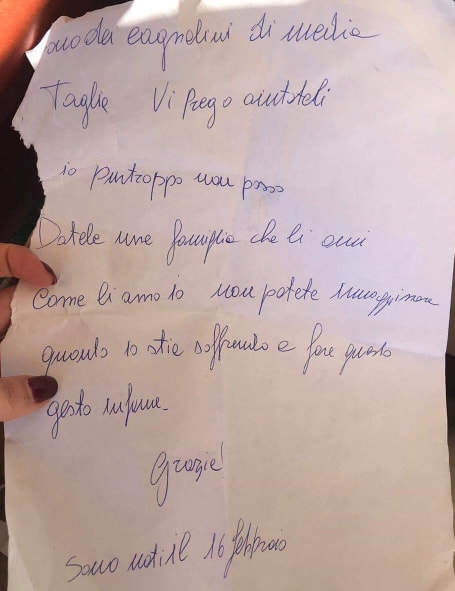 sono dei cagnolini di media
Taglia Vi prego aiutateli
io purtroppo non posso
Datele una famiglia che li ami
Come li amo io non potete immaginare
quanto io stia soffrendo a fare questo
gesto infame_
Grazie!
Sono nati il 16 febbraio